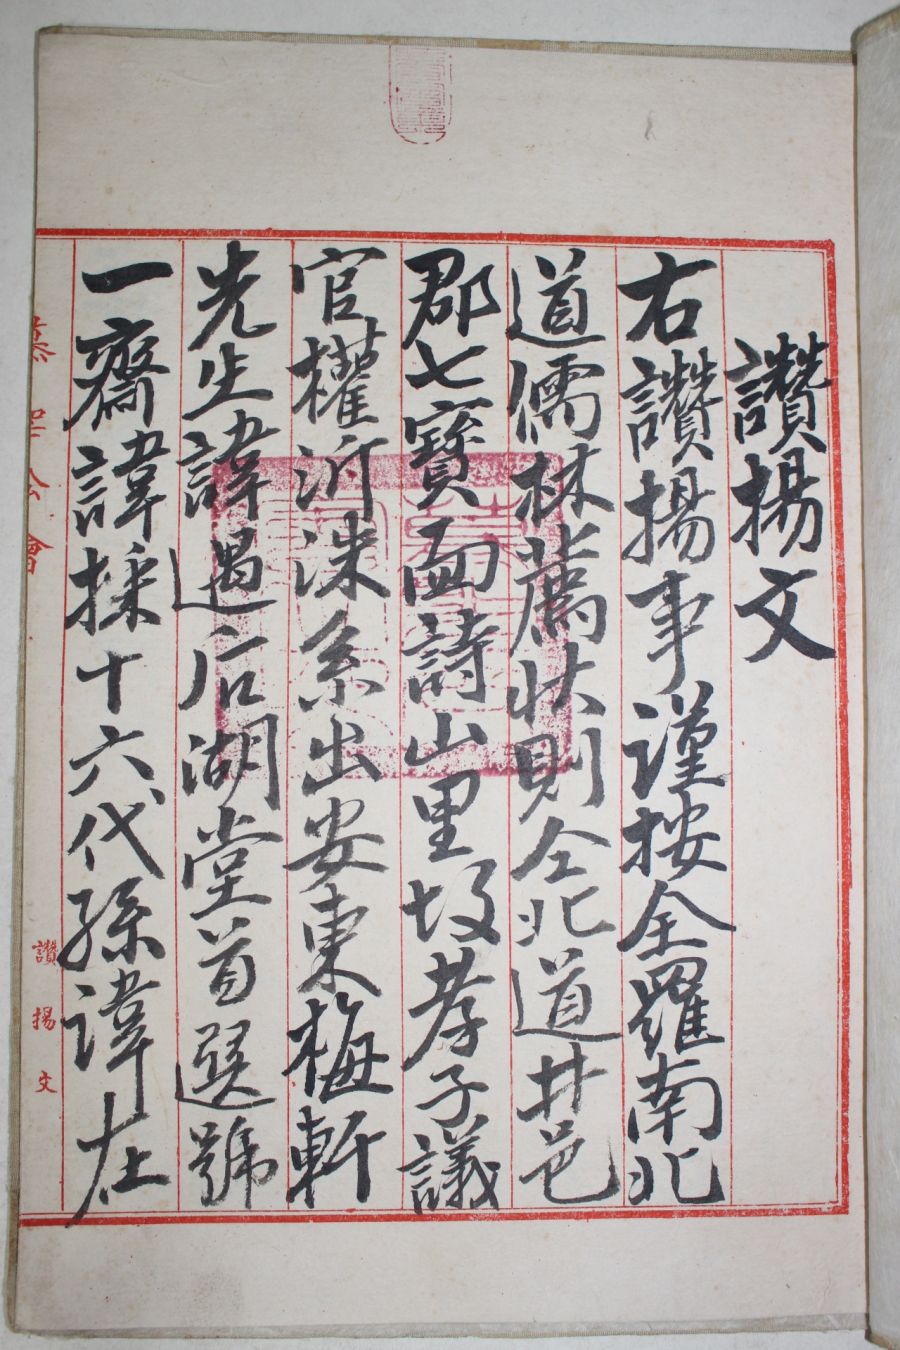 讚揚文
右讚揚事謹按全羅南北
道儒林薦狀則仝北道井邑
郡七寶面詩山里故孝子議
官權沂洙系出安東梅軒
先生諱遇后湖堂首選號
一齋諱採十六代孫諱在
會
讚揚文